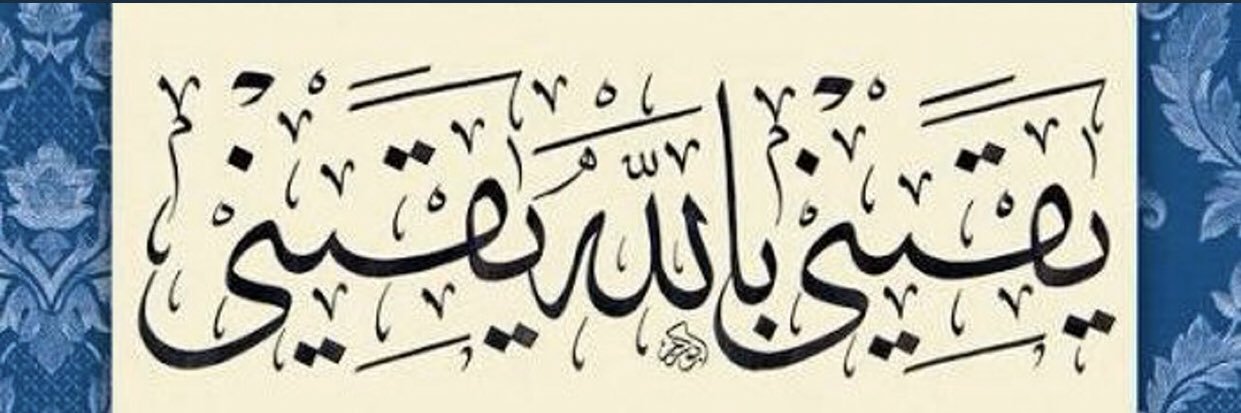 يَقِينِي بِاللهِ يَقِينِي